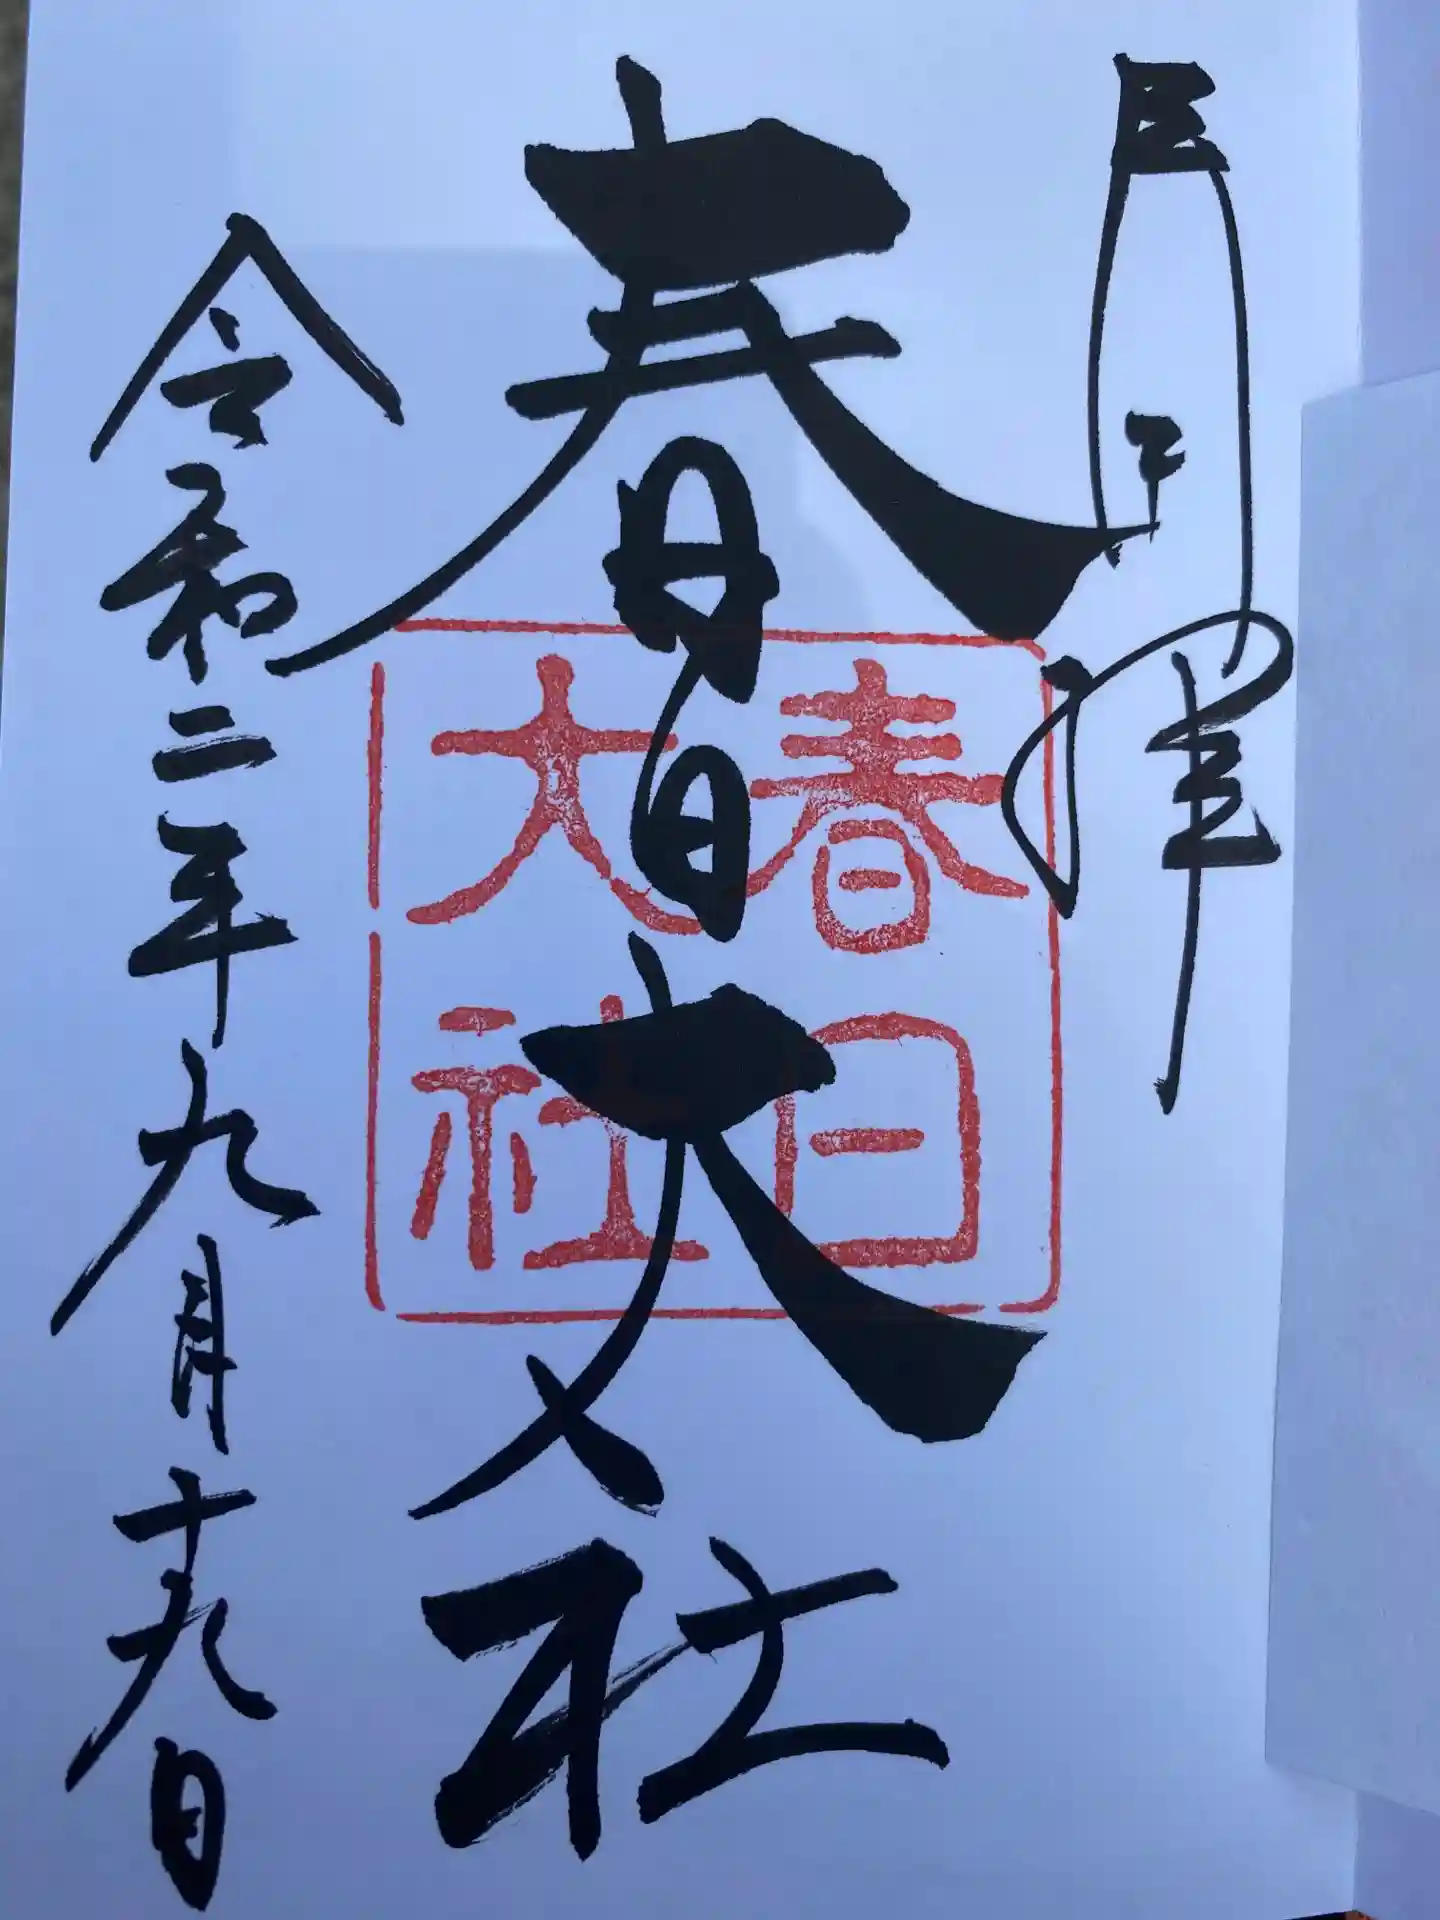 奉拝
春日大社
春日
大社
令和二年九月十九日